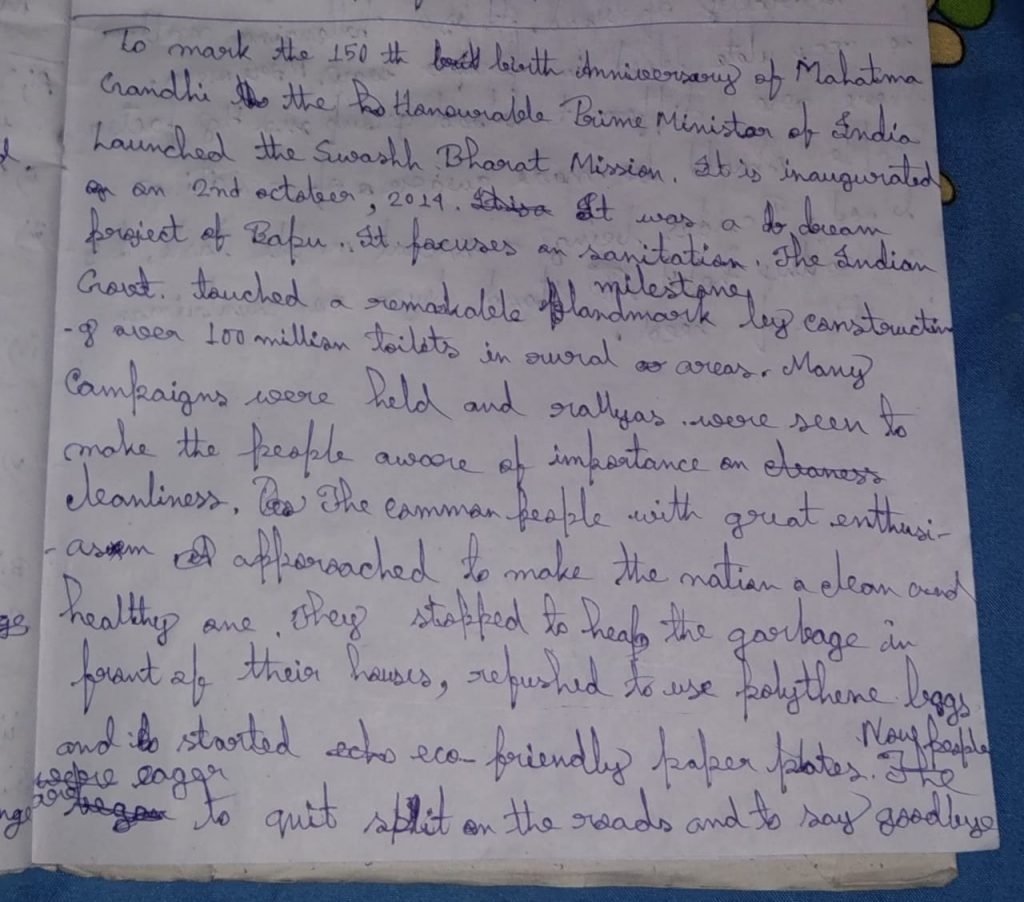 To mark the 150 th birth Anniversary of Mahatma
Gandhi the Honourable Prime Minister of India
Launched the Swashh Bharat Mission. It is inaugurated
on 2nd october, 2014. It was a dream
project of Bapu. It focuses on sanitation. The Indian
milestone
Govt. touched a remarkable landmark by constructin
-g over 100 million toilets in rural areas. Many
Campaigns were held and rallyas were seen to
make the people aware of importance on cleaness
cleanliness. The common people with great enthusi-
-asm approached to make the nation a clean and
healthy one. They stopped to heap the garbage in
front of their houses, refushed to use polythene bags
and started eco-friendly paper plates. The
Now people
were eagar
are began to quit split on the roads and to say goodbye